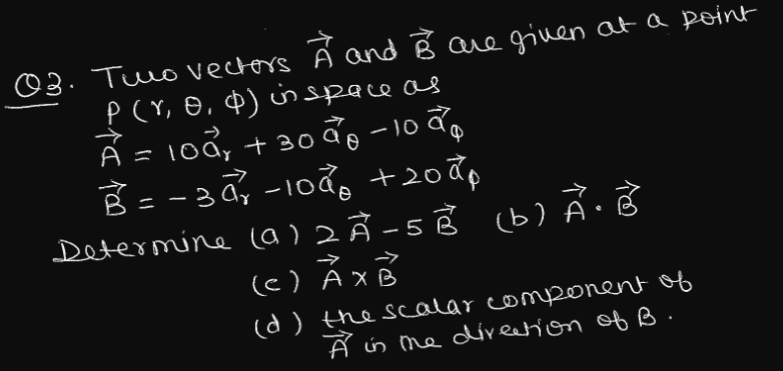 Q3. Two vectors A⃗ and B⃗ are given at a point
P(r, θ, φ) in space as
A⃗ = 10a⃗r + 30a⃗θ - 10a⃗φ
B⃗ = -3a⃗r - 10a⃗θ + 20a⃗φ
Determine (a) 2A⃗ - 5B⃗ (b) A⃗ · B⃗
(c) A⃗ × B⃗
(d) the scalar component of
A⃗ in the direction of B.